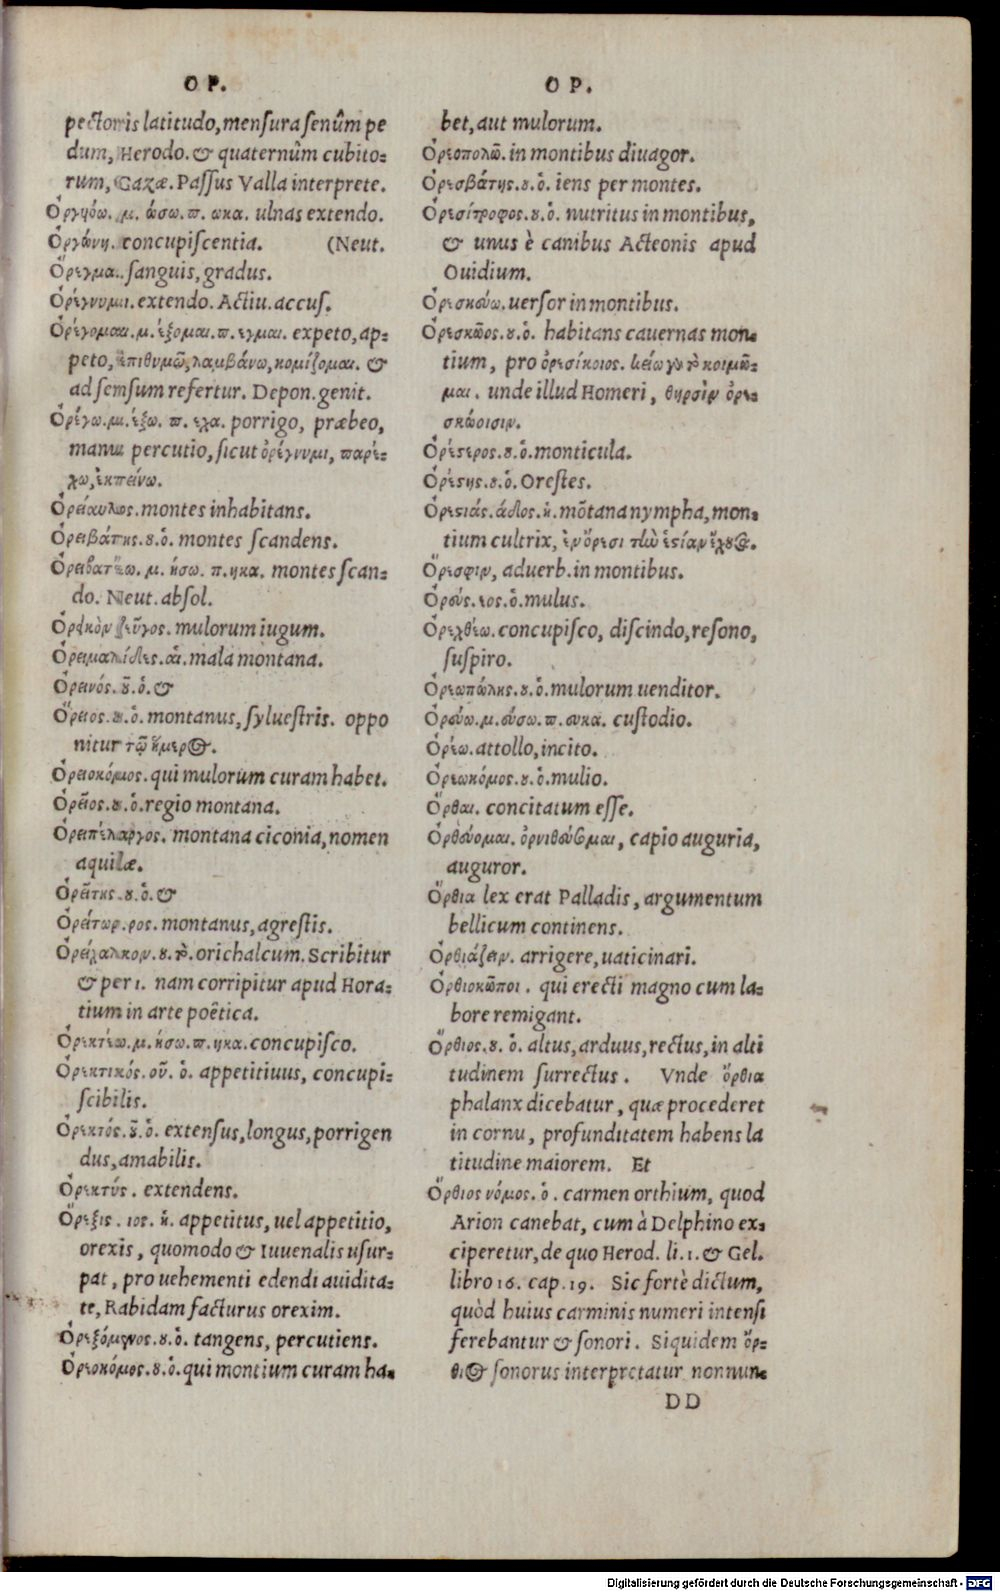 ΟΡ.
pectoris latitudo, mensura senûm pe
dum, Herodo. & quaternûm cubito=
rum, Gazæ. Passus Valla interprete.
Ὀργυόω. μ. ώσω. π. ωκα. ulnas extendo.
Ὀργάνη. concupiscentia. (Neut.
Ὄρεγμα. sanguis, gradus.
Ὀρέγνυμι. extendo. Actiu. accus.
Ὀρέγομαι. μ. έξομαι. π. εγμαι. expeto, ap=
peto, ἐπιθυμῶ, λαμβάνω, κομίζομαι. &
ad semsum refertur. Depon. genit.
Ὀρέγω. μ. έξω. π. εχα. porrigo, præbeo,
manu percutio, sicut ὀρέγνυμι, παρέ=
χω, ἐκτείνω.
Ὀρείαυλος. montes inhabitans.
Ὀρειβάτης. ου. ὁ. montes scandens.
Ὀρειβατέω. μ. ήσω. π. ηκα. montes scan=
do. Neut. absol.
Ὀρεικὸν ζεῦγος. mulorum iugum.
Ὀρειμαλίδες. αἱ. mala montana.
Ὀρεινός. οῦ. ὁ. &
Ὄρειος. ου. ὁ. montanus, syluestris. oppo
nitur τῷ ἥμερος.
Ὀρειοκόμος. qui mulorum curam habet.
Ὀρεῖος. ου. ὁ. regio montana.
Ὀρειπέλαργος. montana ciconia, nomen
aquilæ.
Ὀρείτης. ου. ὁ. &
Ὀρείτωρ. ρος. montanus, agrestis.
Ὀρείχαλκον. ου. τὸ. orichalcum. Scribitur
& per ι. nam corripitur apud Hora=
tium in arte poëtica.
Ὀρεκτέω. μ. ήσω. π. ηκα. concupisco.
Ὀρεκτικός. οῦ. ὁ. appetitiuus, concupi=
scibilis.
Ὀρεκτός. οῦ. ὁ. extensus, longus, porrigen
dus, amabilis.
Ὀρεκτύς. extendens.
Ὄρεξις. ιος. ἡ. appetitus, uel appetitio,
orexis, quomodo & Iuuenalis usur=
pat, pro uehementi edendi auidita=
te, Rabidam facturus orexim.
Ὀρεξόμενος. ου. ὁ. tangens, percutiens.
Ὀρεοκόμος. ου. ὁ. qui montium curam ha=
ΟΡ.
bet, aut mulorum.
Ὀρεοπολῶ. in montibus diuagor.
Ὀρεσβάτης. ου. ὁ. iens per montes.
Ὀρεσίτροφος. ου. ὁ. nutritus in montibus,
& unus è canibus Acteonis apud
Ouidium.
Ὀρεσκεύω. uersor in montibus.
Ὀρεσκῷος. ου. ὁ. habitans cauernas mon=
tium, pro ὀρεσίκοιος. κείω γὰρ τὸ κοιμῶ=
μαι. unde illud Homeri, θηρσὶν ὀρε=
σκώοισιν.
Ὀρέστερος. ου. ὁ. monticula.
Ὀρέστης. ου. ὁ. Orestes.
Ὀρεστιάς. άδος. ἡ. mõtana nympha, mon=
tium cultrix, ἐν ὄρεσι τὴν ἑστίαν ἔχουσα.
Ὄρεσφιν, aduerb. in montibus.
Ὀρεύς. εος. ὁ. mulus.
Ὀρεχθέω. concupisco, discindo, resono,
suspiro.
Ὀρεωπώλης. ου. ὁ. mulorum uenditor.
Ὀρεύω. μ. εύσω. π. ευκα. custodio.
Ὀρέω. attollo, incito.
Ὀρεωκόμος. ου. ὁ. mulio.
Ὄρθαι. concitatum esse.
Ὀρθεύομαι. ὀρνιθεύομαι, capio auguria,
auguror.
Ὄρθια lex erat Palladis, argumentum
bellicum continens.
Ὀρθιάζειν. arrigere, uaticinari.
Ὀρθιοκῶποι. qui erecti magno cum la=
bore remigant.
Ὄρθιος. ου. ὁ. altus, arduus, rectus, in alti
tudinem surrectus. Vnde ὄρθια
phalanx dicebatur, quæ procederet
in cornu, profunditatem habens la
titudine maiorem. Et
Ὄρθιος νόμος. ὁ. carmen orthium, quod
Arion canebat, cum à Delphino ex=
ciperetur, de quo Herod. li. 1. & Gel.
libro 16. cap. 19. Sic fortè dictum,
quòd huius carminis numeri intensi
ferebantur & sonori. Siquidem ὄρ=
θιος sonorus interpretatur nonnun=
DD
Digitalisierung gefördert durch die Deutsche Forschungsgemeinschaft - DFG